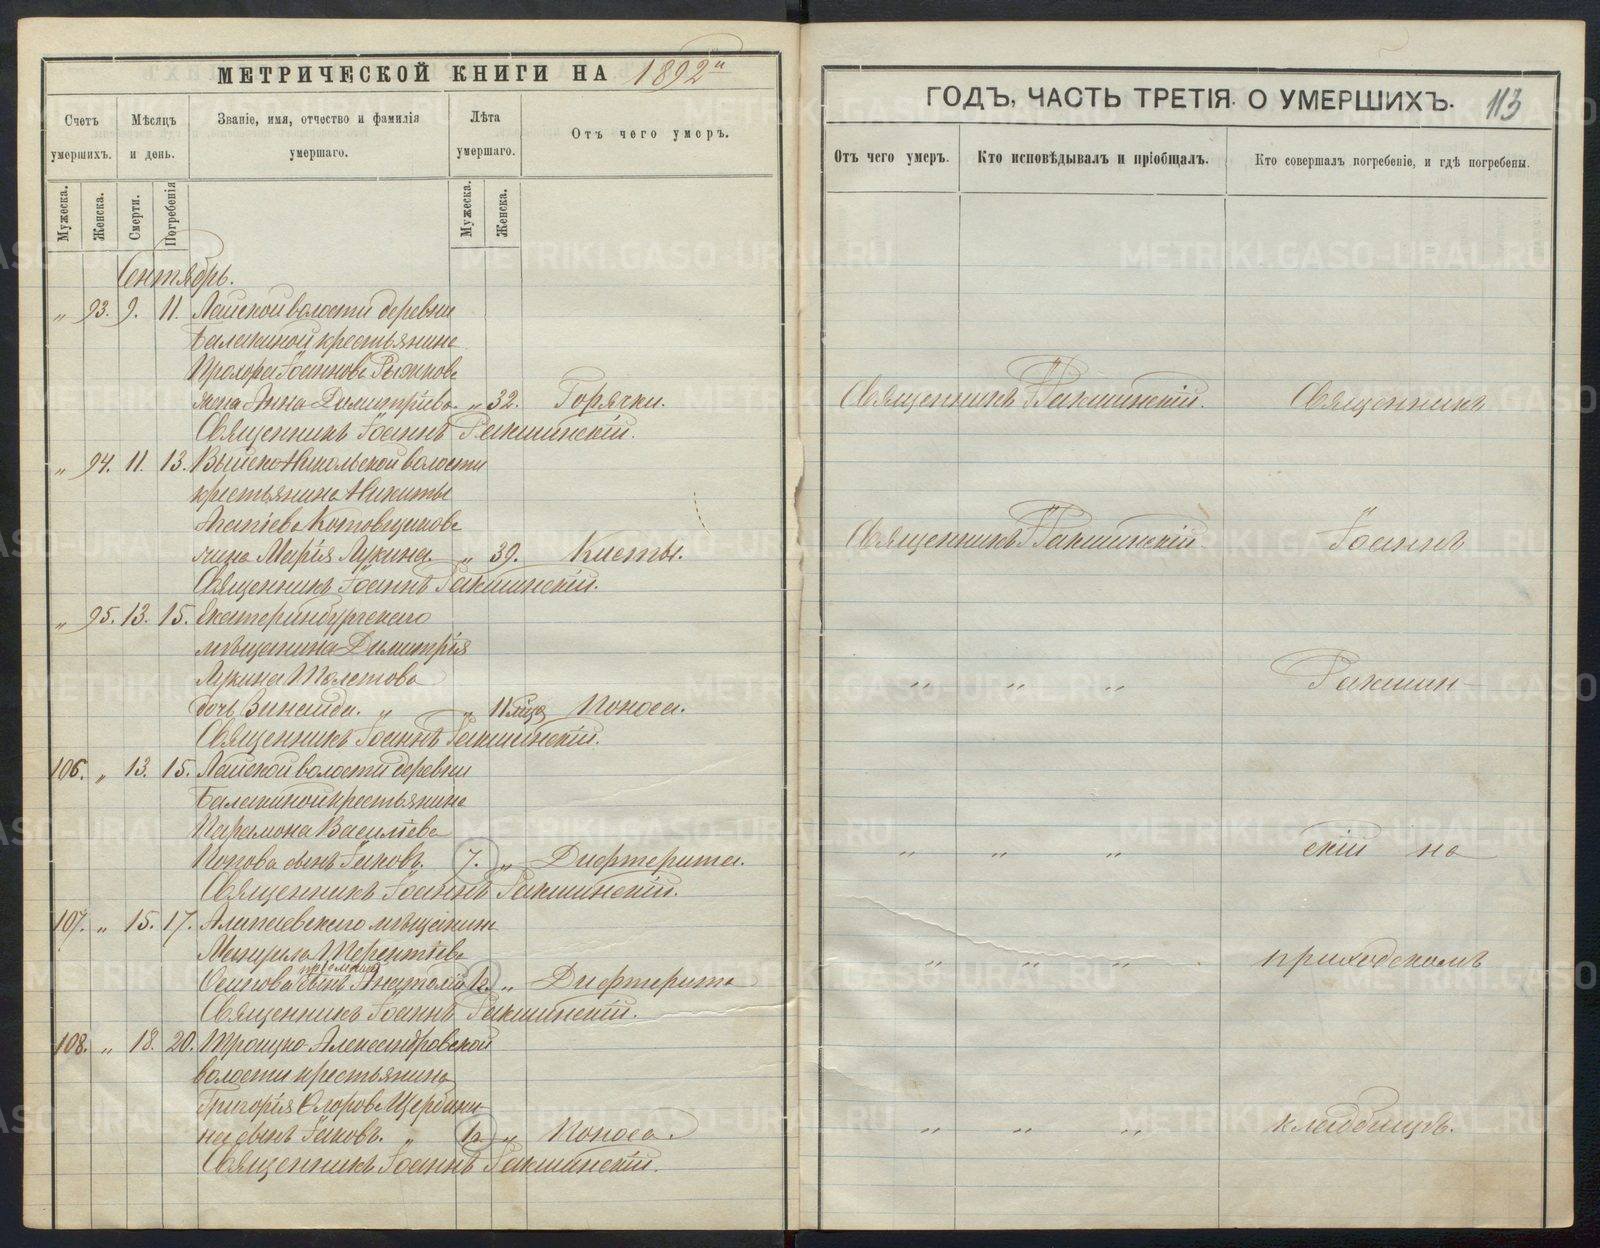 МЕТРИЧЕСКОЙ КНИГИ НА 1892й
Счетъ умершихъ.
Мѣсяцъ и день.
Званіе, имя, отчество и фамилія умершаго.
Лѣта умершаго.
Отъ чего умеръ.
Мужеска.
Женска.
Смерти.
Погребенія
Мужеска.
Женска.
Сентябрь.
„ 93. 9. 11. Лайской волости деревни
Балакиной крестьянина
Прохора Іоаннова Рыжкова
жена Анна Димитріева. „ 32. Горячки.
Священникъ Іоаннъ Ракшинскій.
„ 94. 11. 13. Выйско-Никольской волости
крестьянина Никиты
Агапіева Котовщикова
жена Марія Лукина. „ 39. Кисты.
Священникъ Іоаннъ Ракшинскій.
„ 95. 13. 15. Екатеринбургскаго
мѣщанина Димитрія
Лукина
дочь Зинаида. „ „ 11 мѣс. Поноса.
Священникъ Іоаннъ Ракшинскій.
106. „ 13. 15. Лайской волости деревни
Балакиной крестьянина
Парамона Василіева
Попова сынъ Іаковъ. 7. „ Дифтерита.
Священникъ Іоаннъ Ракшинскій.
107. „ 15. 17. Алапаевскаго мѣщанина
Мануила Терентіева
пріемный
Осипова сынъ Анатолій ½. „ Дифтерита
Священникъ Іоаннъ Ракшинскій.
108. „ 18. 20. Троицко-Александровской
волости крестьянина
Григорія Флорова Щербини-
на сынъ Іаковъ. „ ½ „ Поноса.
Священникъ Іоаннъ Ракшинскій.
ГОДЪ, ЧАСТЬ ТРЕТІЯ. О УМЕРШИХЪ. 113
Отъ чего умеръ.
Кто исповѣдывалъ и пріобщалъ.
Кто совершалъ погребеніе, и гдѣ погребены.
Священникъ І. Ракшинскій. Священникъ
Священникъ І. Ракшинскій. Іоаннъ
„ „ „ Ракшин-
„ „ „ скій на
„ „ „ приходскомъ
„ „ „ кладбищѣ.
METRIKI.GASO-URAL.RU